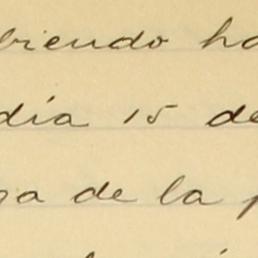 biendo ha
día 15 de
ga de la p